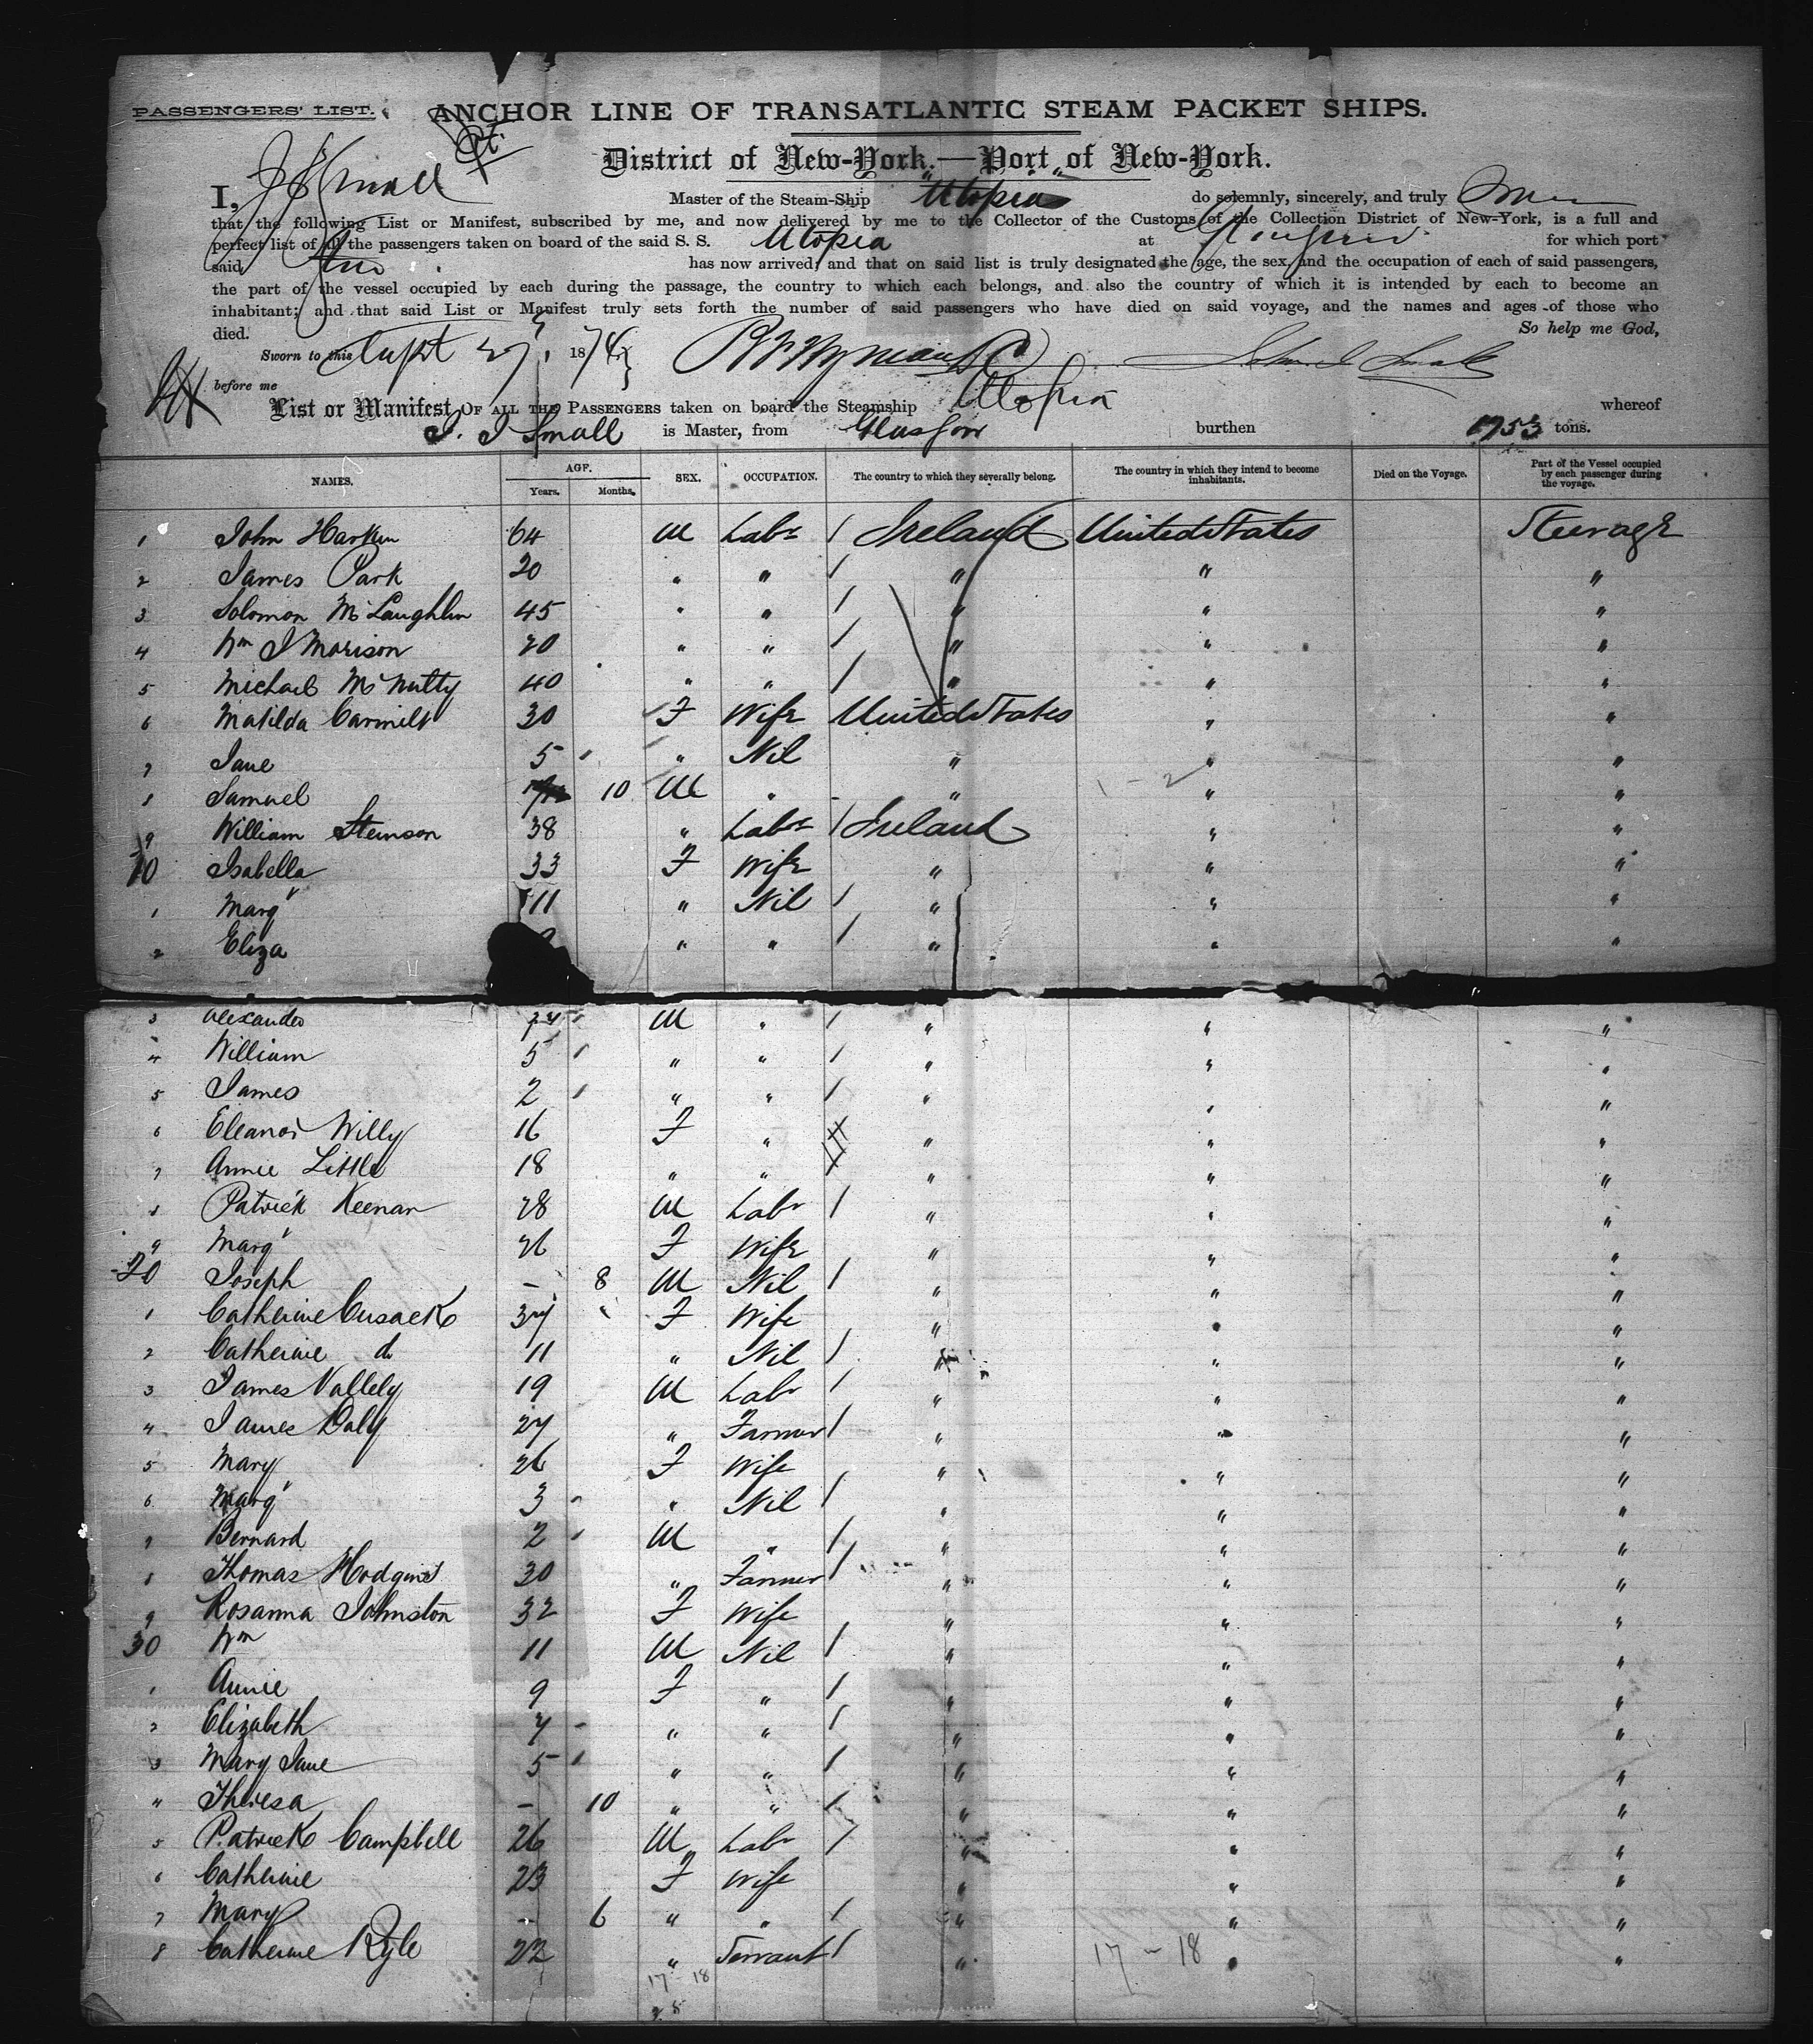 PASSENGERS' LIST. ANCHOR LINE OF TRANSATLANTIC STEAM PACKET SHIPS.
District of New-York.—Port of New-York.
I, J J Small Master of the Steam-Ship "Utopia" do solemnly, sincerely, and truly
that the following List or Manifest, subscribed by me, and now delivered by me to the Collector of the Customs of the Collection District of New-York, is a full and
perfect list of all the passengers taken on board of the said S. S. Utopia at for which port
said has now arrived; and that on said list is truly designated the age, the sex, and the occupation of each of said passengers,
the part of the vessel occupied by each during the passage, the country to which each belongs, and also the country of which it is intended by each to become an
inhabitant; and that said List or Manifest truly sets forth the number of said passengers who have died on said voyage, and the names and ages of those who
died. So help me God,
Sworn to this Sept 27, 1874
before me
List or Manifest OF ALL THE PASSENGERS taken on board the Steamship Utopia whereof
J. J Small is Master, from Glasgow burthen 1753 tons.
NAMES. AGE. Years. Months. SEX. OCCUPATION. The country to which they severally belong. The country in which they intend to become inhabitants. Died on the Voyage. Part of the Vessel occupied by each passenger during the voyage.
1 John Harkin 64 M Labr / Ireland United States Steerage
2 James Park 20 " " / " " "
3 Solomon McLaughlin 45 " " / " " "
4 Wm J Morison 20 " " / " " "
5 Michael McNulty 40 " " / " " "
6 Matilda 30 F Wife United States " "
7 Jane 5 " Nil " " "
8 Samuel 10 M " " " "
9 William Stewson 38 " Labr / Ireland " "
10 Isabella 33 F Wife " " "
1 Margt 11 " Nil / " " "
2 Eliza " " / " " "
3 Alexander M " / " " "
4 William 5 " " / " " "
5 James 2 " " / " " "
6 Eleanor Willy 16 F " " " "
7 Annie Little 18 " " " " "
8 Patrick Keenan 28 M Labr / " " "
9 Margt 26 F Wife " " "
20 Joseph - 8 M Nil / " " "
1 Catherine Cusack 37 F Wife " " "
2 Catherine do 11 " Nil / " " "
3 James Vallely 19 M Labr / " " "
4 James Daly 27 " Farmer / " " "
5 Mary 26 F Wife " " "
6 Margt 3 " Nil / " " "
7 Bernard 2 M " / " " "
8 Thomas Hodgins 30 " Farmer / " " "
9 Rosanna Johnston 32 F Wife " " "
30 Wm 11 M Nil / " " "
1 Annie 9 F " / " " "
2 Elizabeth 7 " " / " " "
3 Mary Jane 5 " " / " " "
4 Theresa - 10 " " / " " "
5 Patrick Campbell 26 M Labr / " " "
6 Catherine 23 F Wife " " "
7 Mary - 6 " " / " " "
8 Catherine Kyle 22 " Servant / " " "
17 - 18 17 - 18